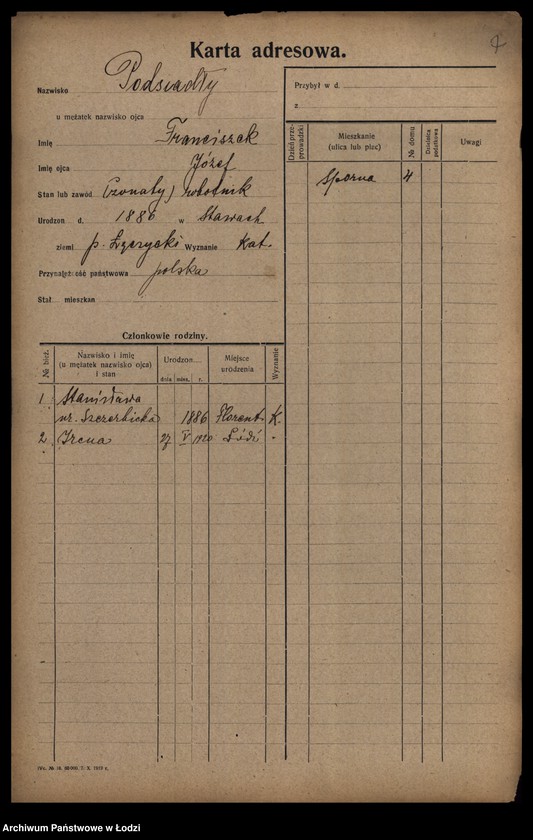 Karta adresowa.
Nazwisko Podsiadły
u mężatek nazwisko ojca
Imię Franciszek
Imię ojca Józef
Stan lub zawód (żonaty) robotnik
Urodzon d. 1886 w Stawach
ziemi p. Łęczycki Wyznanie Kat.
Przynależność państwowa polska
Stał. mieszkan
Przybył w d.
z
Dzień przeprowadzki
Mieszkanie
(ulica lub plac)
№ domu
Dzielnica podatkowa
Uwagi
Sporna 4
Członkowie rodziny.
№ bież.
Nazwisko i imię
(u mężatek nazwisko ojca)
i stan
Urodzon
dnia mies. r.
Miejsce
urodzenia
Wyznanie
1 Stanisława
ur. Szczerbicka 1886 Florent. K.
2 Irena 27 V 1920 Łódź "
Archiwum Państwowe w Łodzi